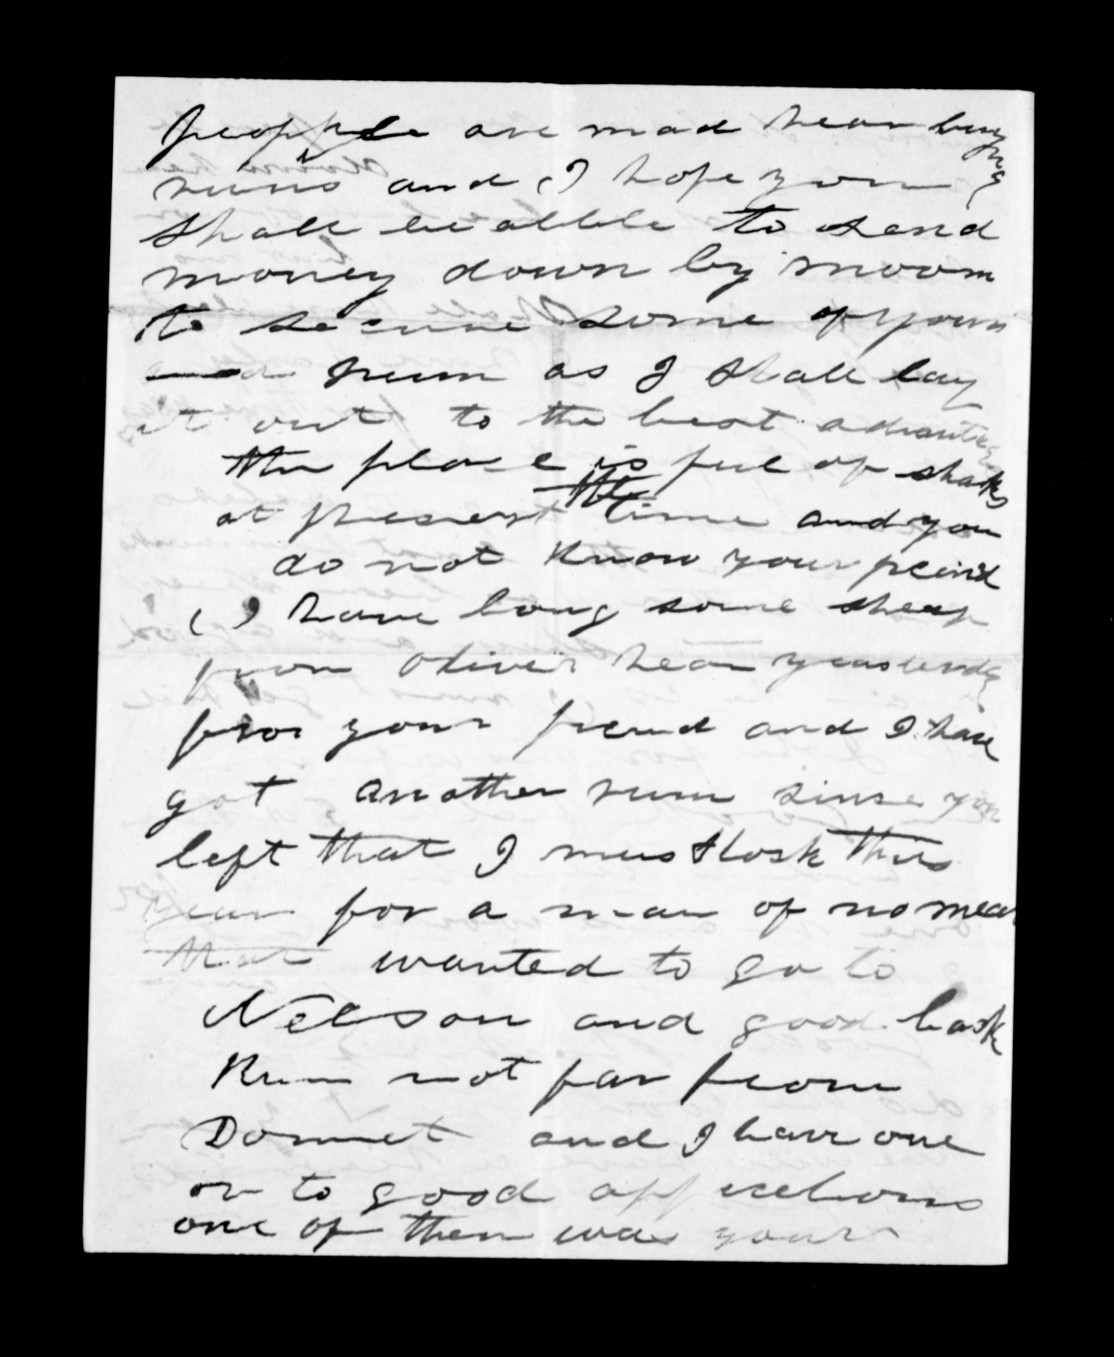 people are mad hear buying
runs and I hope you
shall be allble to send
mooney down by moom
to secure some of your
and frum as I shall lay
it out to the best advantig
the place is full of sharks
at present time and you
do not know your freind
I have boug some sheap
from Olivers hear yeasterday
for your freind and I have
got another rum sinse you
left that I must losk this
year for a man of no mean
that wanted to go to
Nelson and good back
Run not far from
Dommet and I have one
or to good appecelions
one of them was your